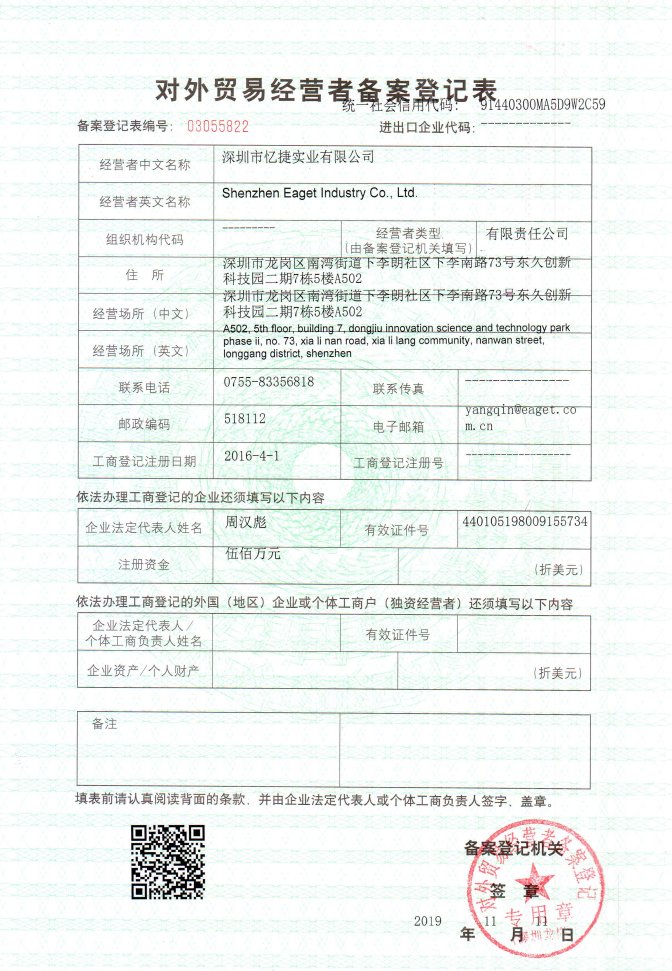 对外贸易经营者备案登记表
统一社会信用代码: 91440300MA5D9W2C59
备案登记表编号: 03055822 进出口企业代码: -------------
经营者中文名称 深圳市忆捷实业有限公司
经营者英文名称 Shenzhen Eaget Industry Co., Ltd.
组织机构代码 --------- 经营者类型 (由备案登记机关填写) 有限责任公司
住 所 深圳市龙岗区南湾街道下李朗社区下李南路73号东久创新
科技园二期7栋5楼A502
经营场所 (中文) 深圳市龙岗区南湾街道下李朗社区下李南路73号东久创新
科技园二期7栋5楼A502
经营场所 (英文) A502, 5th floor, building 7, dongjiu innovation science and technology park
phase ii, no. 73, xia li nan road, xia li lang community, nanwan street,
longgang district, shenzhen
联系电话 0755-83356818 联系传真 ---------------
邮政编码 518112 电子邮箱 yangqin@eaget.co
m.cn
工商登记注册日期 2016-4-1 工商登记注册号 ---------------
依法办理工商登记的企业还须填写以下内容
企业法定代表人姓名 周汉彪 有效证件号 440105198009155734
注册资金 伍佰万元 (折美元)
依法办理工商登记的外国（地区）企业或个体工商户（独资经营者）还须填写以下内容
企业法定代表人/
个体工商负责人姓名 有效证件号
企业资产/个人财产 (折美元)
备注
填表前请认真阅读背面的条款，并由企业法定代表人或个体工商负责人签字、盖章。
备案登记机关
签 章
对外贸易经营者备案登记
专用章
2019 11 11
年 月 日